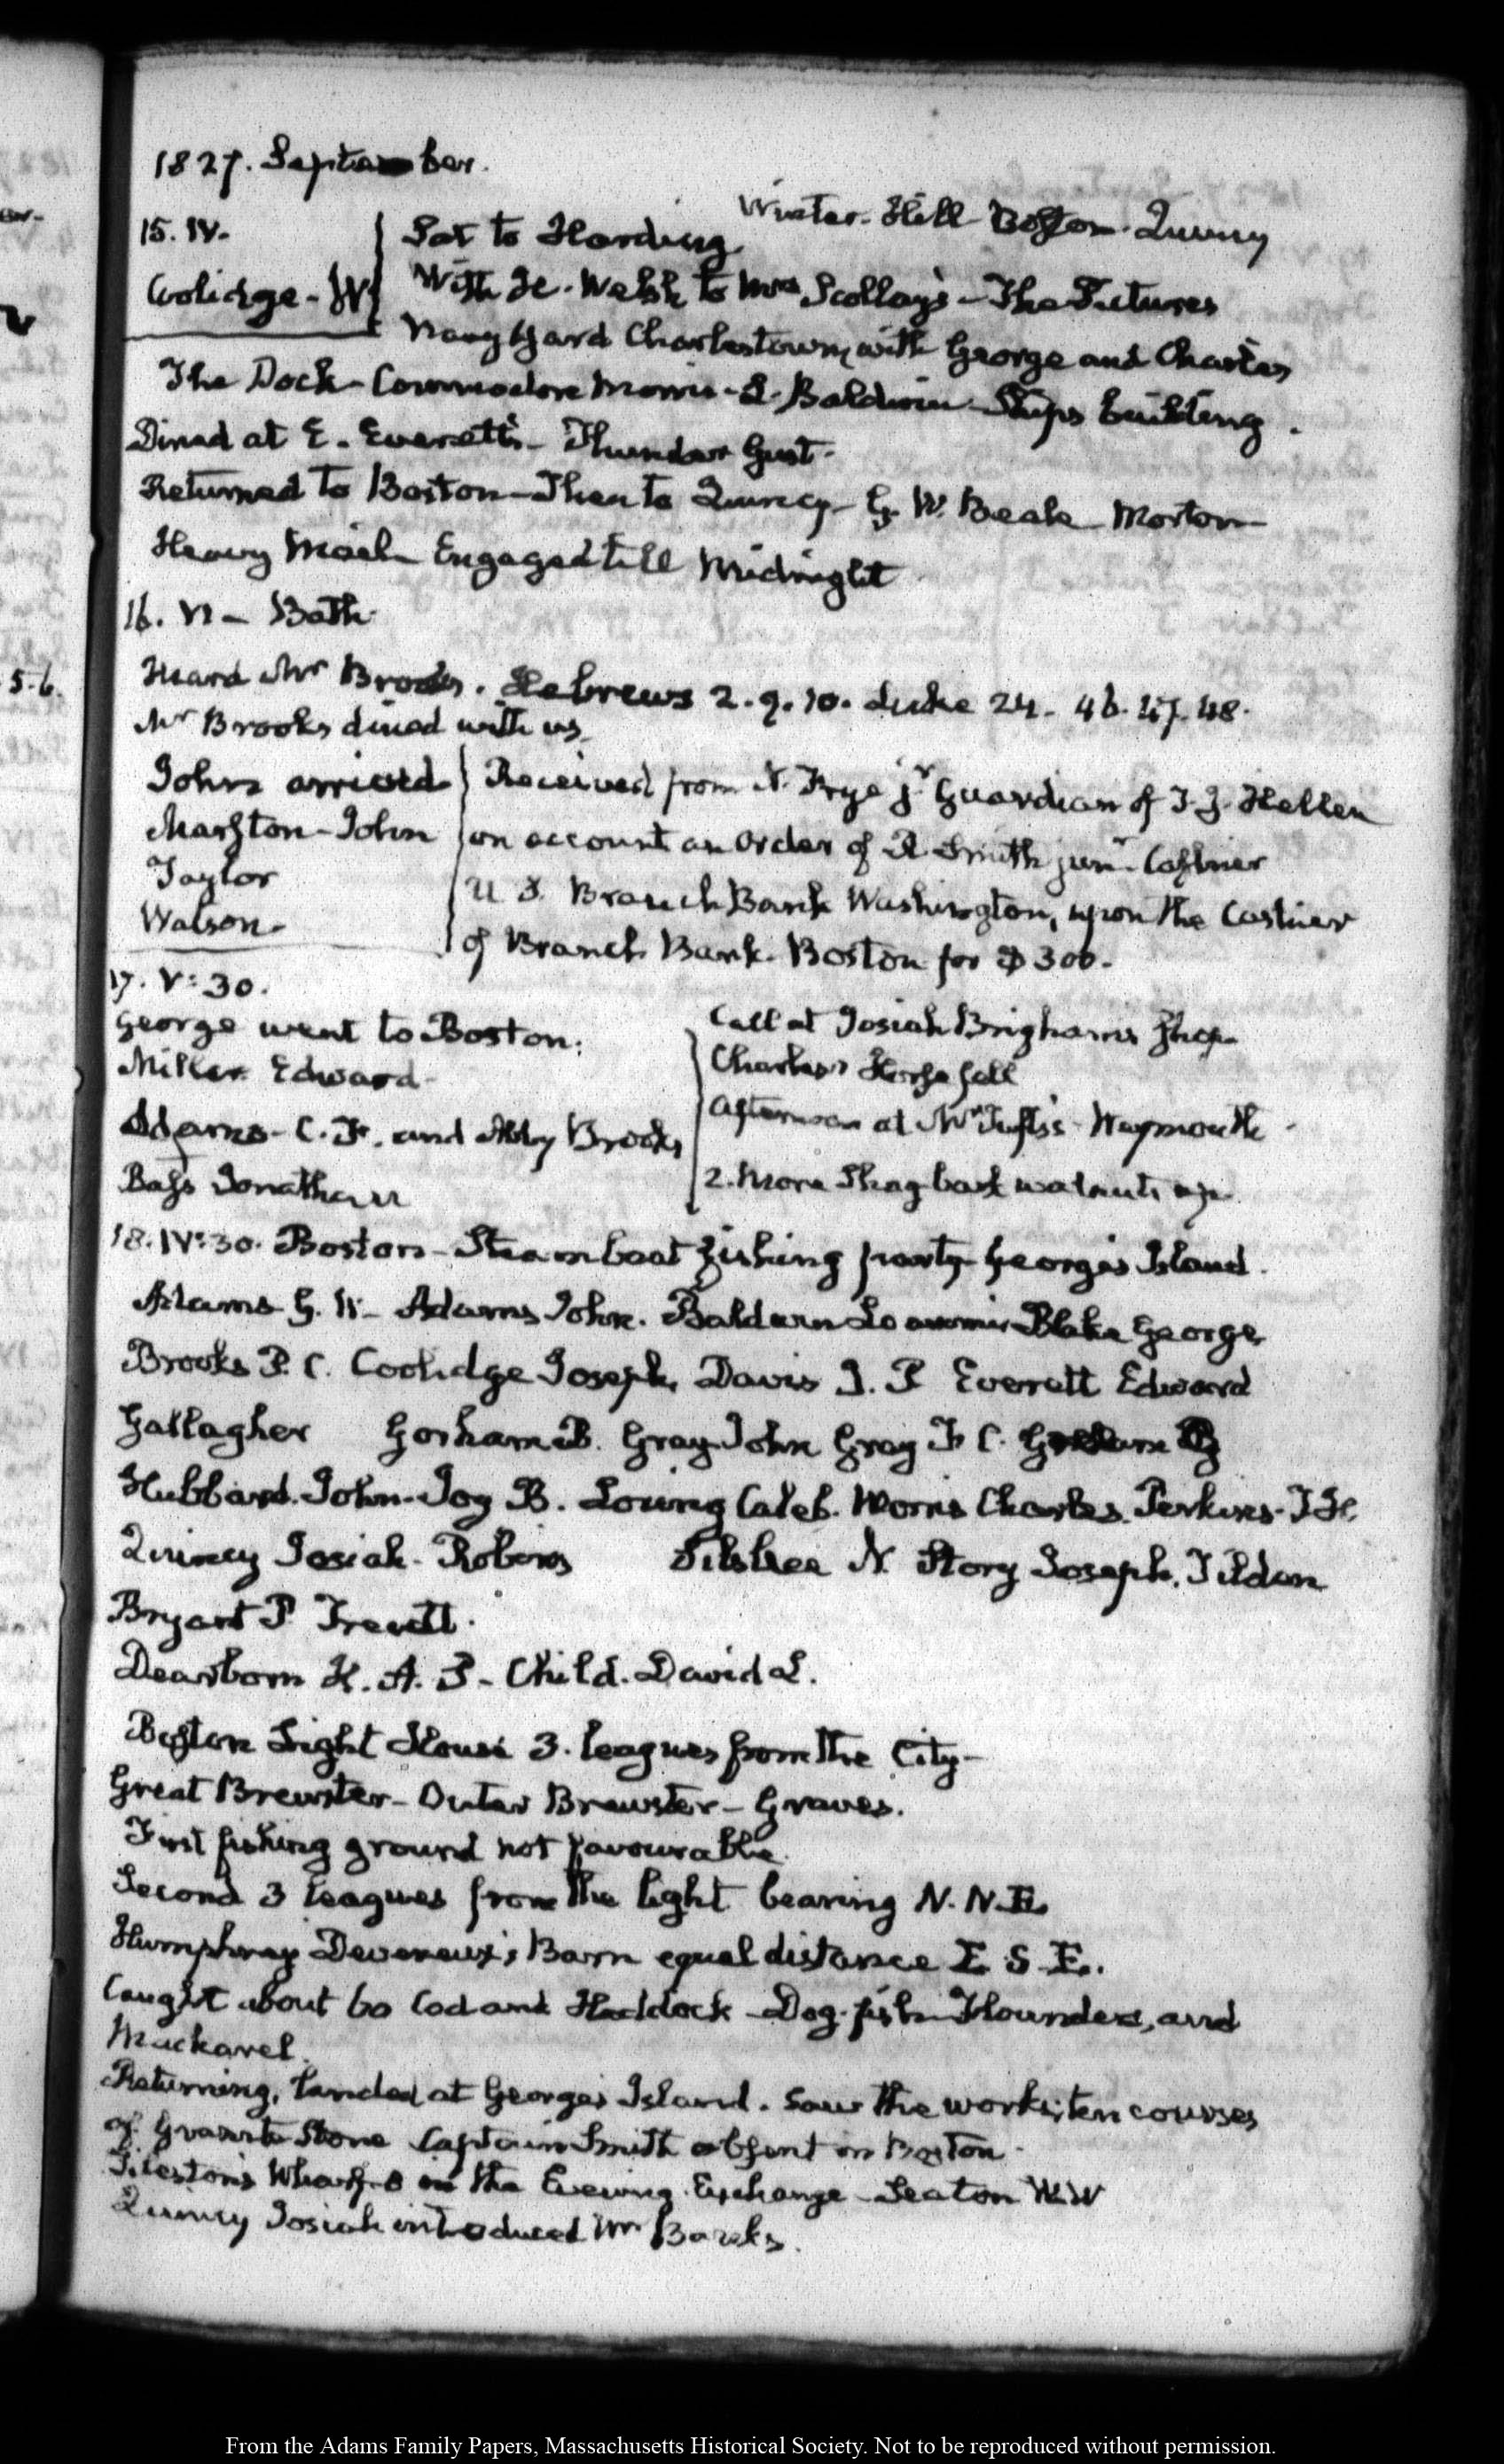 1827. September.
Winter Hill Boston. Quincy
15. IV.
Coolidge - W
Sat to Harding.
With H. Welsh to Mrs Scollay's - The Pictures
Navy Yard Charlestown, with George and Charles
The Dock - Commodore Morris - L. Baldwin - Ships building.
Dined at E. Everett's - Thunder Gust -
Returned to Boston - Then to Quincy - G. W. Beale Morton
Heavy Mail Engaged till Midnight
16. VI - Bath.
Heard Mr Brooks. Hebrews 2. 9. 10. Luke 24. 46. 47. 48.
Mr Brooks dined with us.
John arrived
Marston - John
Taylor
Walson -
Received from N. Frye jr Guardian of J. J. Hellen
on account an Order of R Smith junr Cashier
U. S. Branch Bank Washington, upon the Cashier
of Branch Bank. Boston for $300.
17. V: 30.
George went to Boston.
Miller Edward -
Adams - C. F. and Abby Brooks
Bass Jonathan
Call at Josiah Brigham's Shop
Charles's Horse fell
Afternoon at Mr Tufts's Weymouth
2. More Shagbark walnuts up.
18. IV: 30. Boston - Steam boat fishing party George's Island.
Adams G. W - Adams John. Baldwin Loammi Blake George
Brooks P. C. Coolidge Joseph, Davis J. P Everett Edward
Gallagher Gorham B. Gray John Gray F. C.
Hubbard. John. Joy B. Loring Caleb. Morris Charles. Perkins - T. H.
Quincy Josiah - Robins Silsbee N. Story Joseph. Tilden
Bryant P Trevett.
Dearborn H. A. S - Child. David L.
Boston Light House 3. leagues from the City -
Great Brewster - Outer Brewster - Graves.
First fishing ground not favourable.
Second 3 leagues from the light bearing N. N. E.
Humphrey Devereux's Barn equal distance E. S. E.
Caught about 60 Cod and Haddock - Dog-fish - Flounders, and
Mackarel.
Returning, landed at Georges Island. Saw the works; ten courses
of Granite Stone Captain Smith absent in Boston.
Tileston's Wharf 8 in the Evening. Exchange - Seaton W. W
Quincy Josiah introduced Mr Banks.
5. 6.
From the Adams Family Papers, Massachusetts Historical Society. Not to be reproduced without permission.